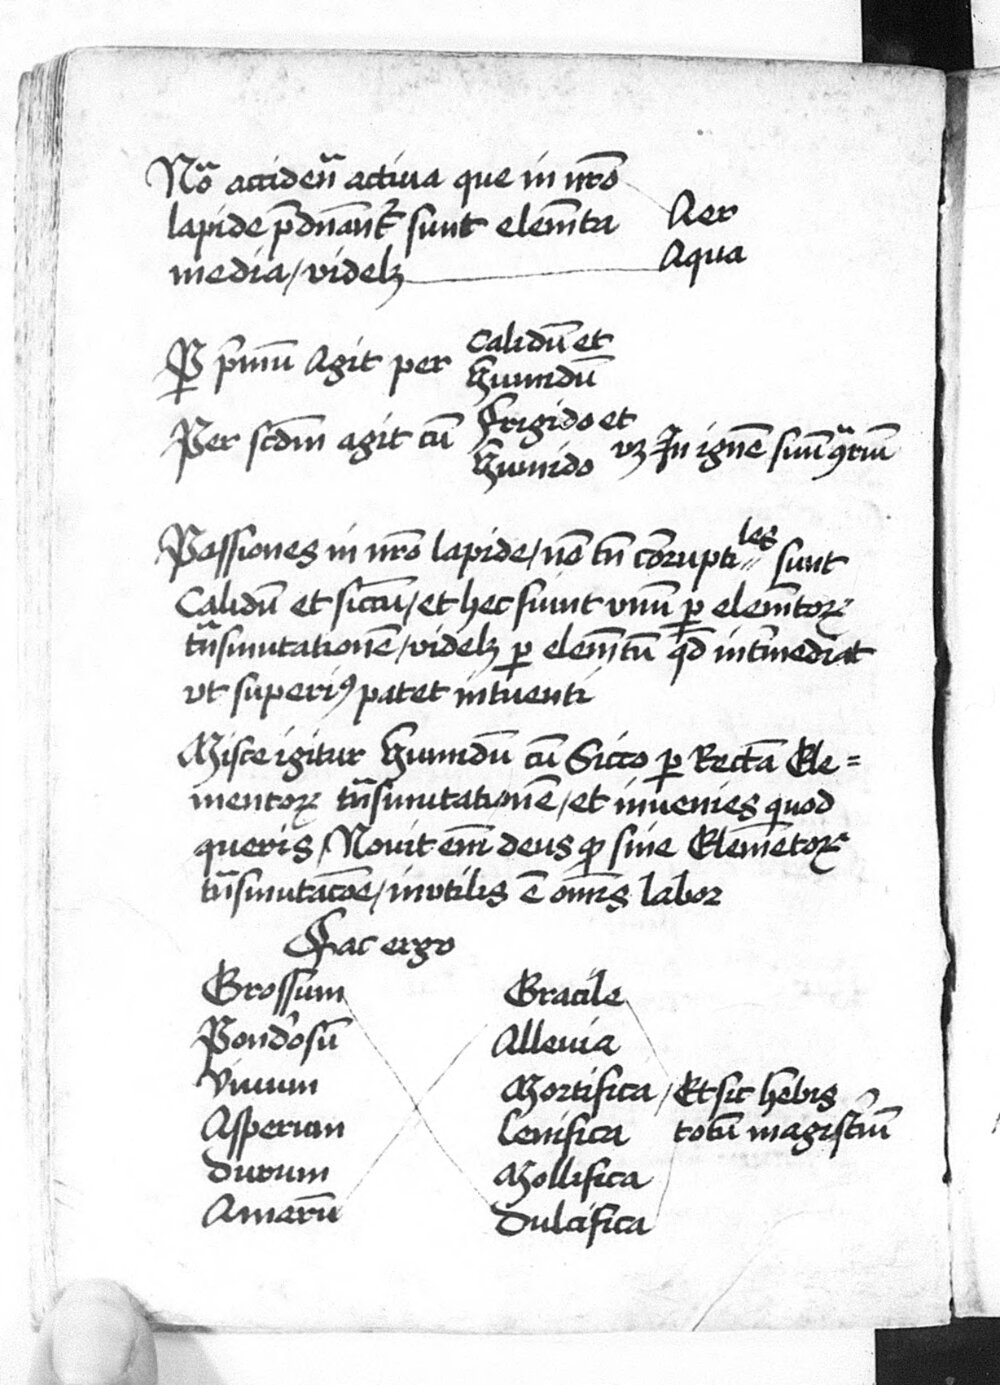 Nōᵃ accidenͣ activa que in nr̄o
lapide p̄dn̄ant᷑ sunt elem̄ta
media / videlꝫ
Aer
Aqua
P̲ p̄mū Agit per
Calidū et
humidū
Per sc̄dm agit cū
frigido et
humido
vꝫ In ignē suū ꝯͣriū
Passiones in nr̄o lapide / nō tn̄ corrupti les sunt
Calidū et siccū / et hec fiunt vnū ꝑ elem̄toꝝ
tn̄ͣsmutationē / videlꝫ ꝑ elem̄tū qd̄ int̄mediat
vt superiꝰ patet intuenti
Misce igitur humidū cū Sicco ꝑ Rectā Ele=
mentoꝝ tn̄ͣsmutationē / et invenies quod
queris / Novit em̄ deus ꝙ sine Elemētoꝝ
tn̄ͣsmutacōe / invtilis ē om̄is labor
Fac ergo
Grossum
Pond'osū
Vivum
Asperum
Durum
Amarū
Gracile
Allevia
Mortifica
Lenifica
Mollifica
Dulcifica
/ Et sic hēbis
totū magist'iū